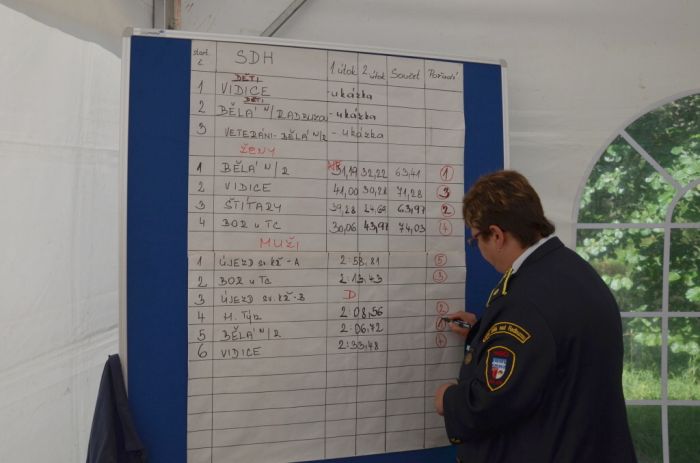 start. č. SDH 1 útok 2 útok Součet Pořadí
DĚTI
1 VIDICE - ukázka
DĚTI
2 BĚLÁ N/RADBUZOU - ukázka
3 VETERÁNI - BĚLÁ N/R - ukázka
ŽENY
1 BĚLÁ N/R 31,19 32,22 63,41 1
2 VIDICE 41,00 30,28 71,28 3
3 ŠTÍTARY 39,28 24,69 63,97 2
4 BOR u TC 30,06 43,97 74,03 4
MUŽI
1 ÚJEZD sv. kř - A 2:58,81 5
2 BOR u TC 2:13,43 3
3 ÚJEZD sv. kř - B D
4 H. Týn 2:08,56 2
5 BĚLÁ N/R 2:06,72 1
6 VIDICE 2:33,48 4